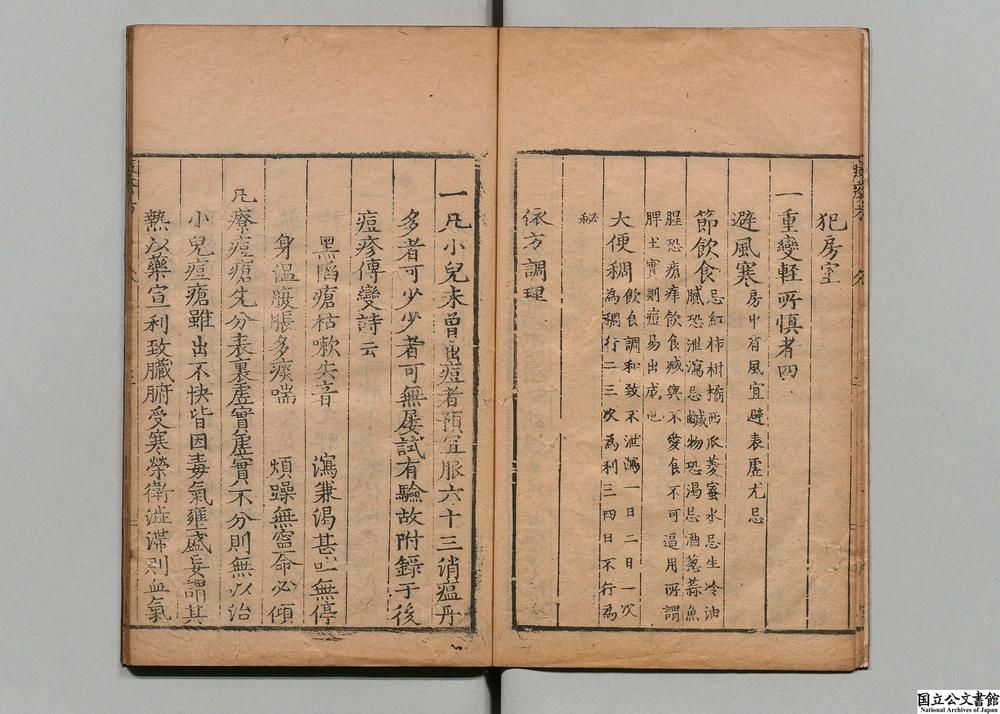 犯房室
一重變軽所慎者四
避風寒房中有風宜避表虛尤忌
節飲食忌紅柿柑橘西瓜菱蜜水忌生冷油
膩恐泄瀉忌鹹物恐渴忌酒葱蒜魚
腥恐瘡痒飲食減與不愛食不可逼用所謂
脾土實則痘易出成也
大便稠飲食調和致不泄瀉一日二日一次
為稠行二三次為利三四日不行為
秘
依方調理
一凡小兒未曾出痘者預宜服六十三消瘟丹
多者可少少者可無屡試有驗故附錄于後
痘疹傳變詩云
黑陷瘡枯嗽失音 瀉兼渴甚吐無停
身温腹脹多痰喘 煩躁無寧命必傾
凡療痘瘡先分表裏虛實虛實不分則無以治
小兒痘瘡雖出不快皆因毒氣壅盛妄謂其
熱以藥宣利致臟腑受寒榮衛澁滯則血氣
国立公文書館
National Archives of Japan